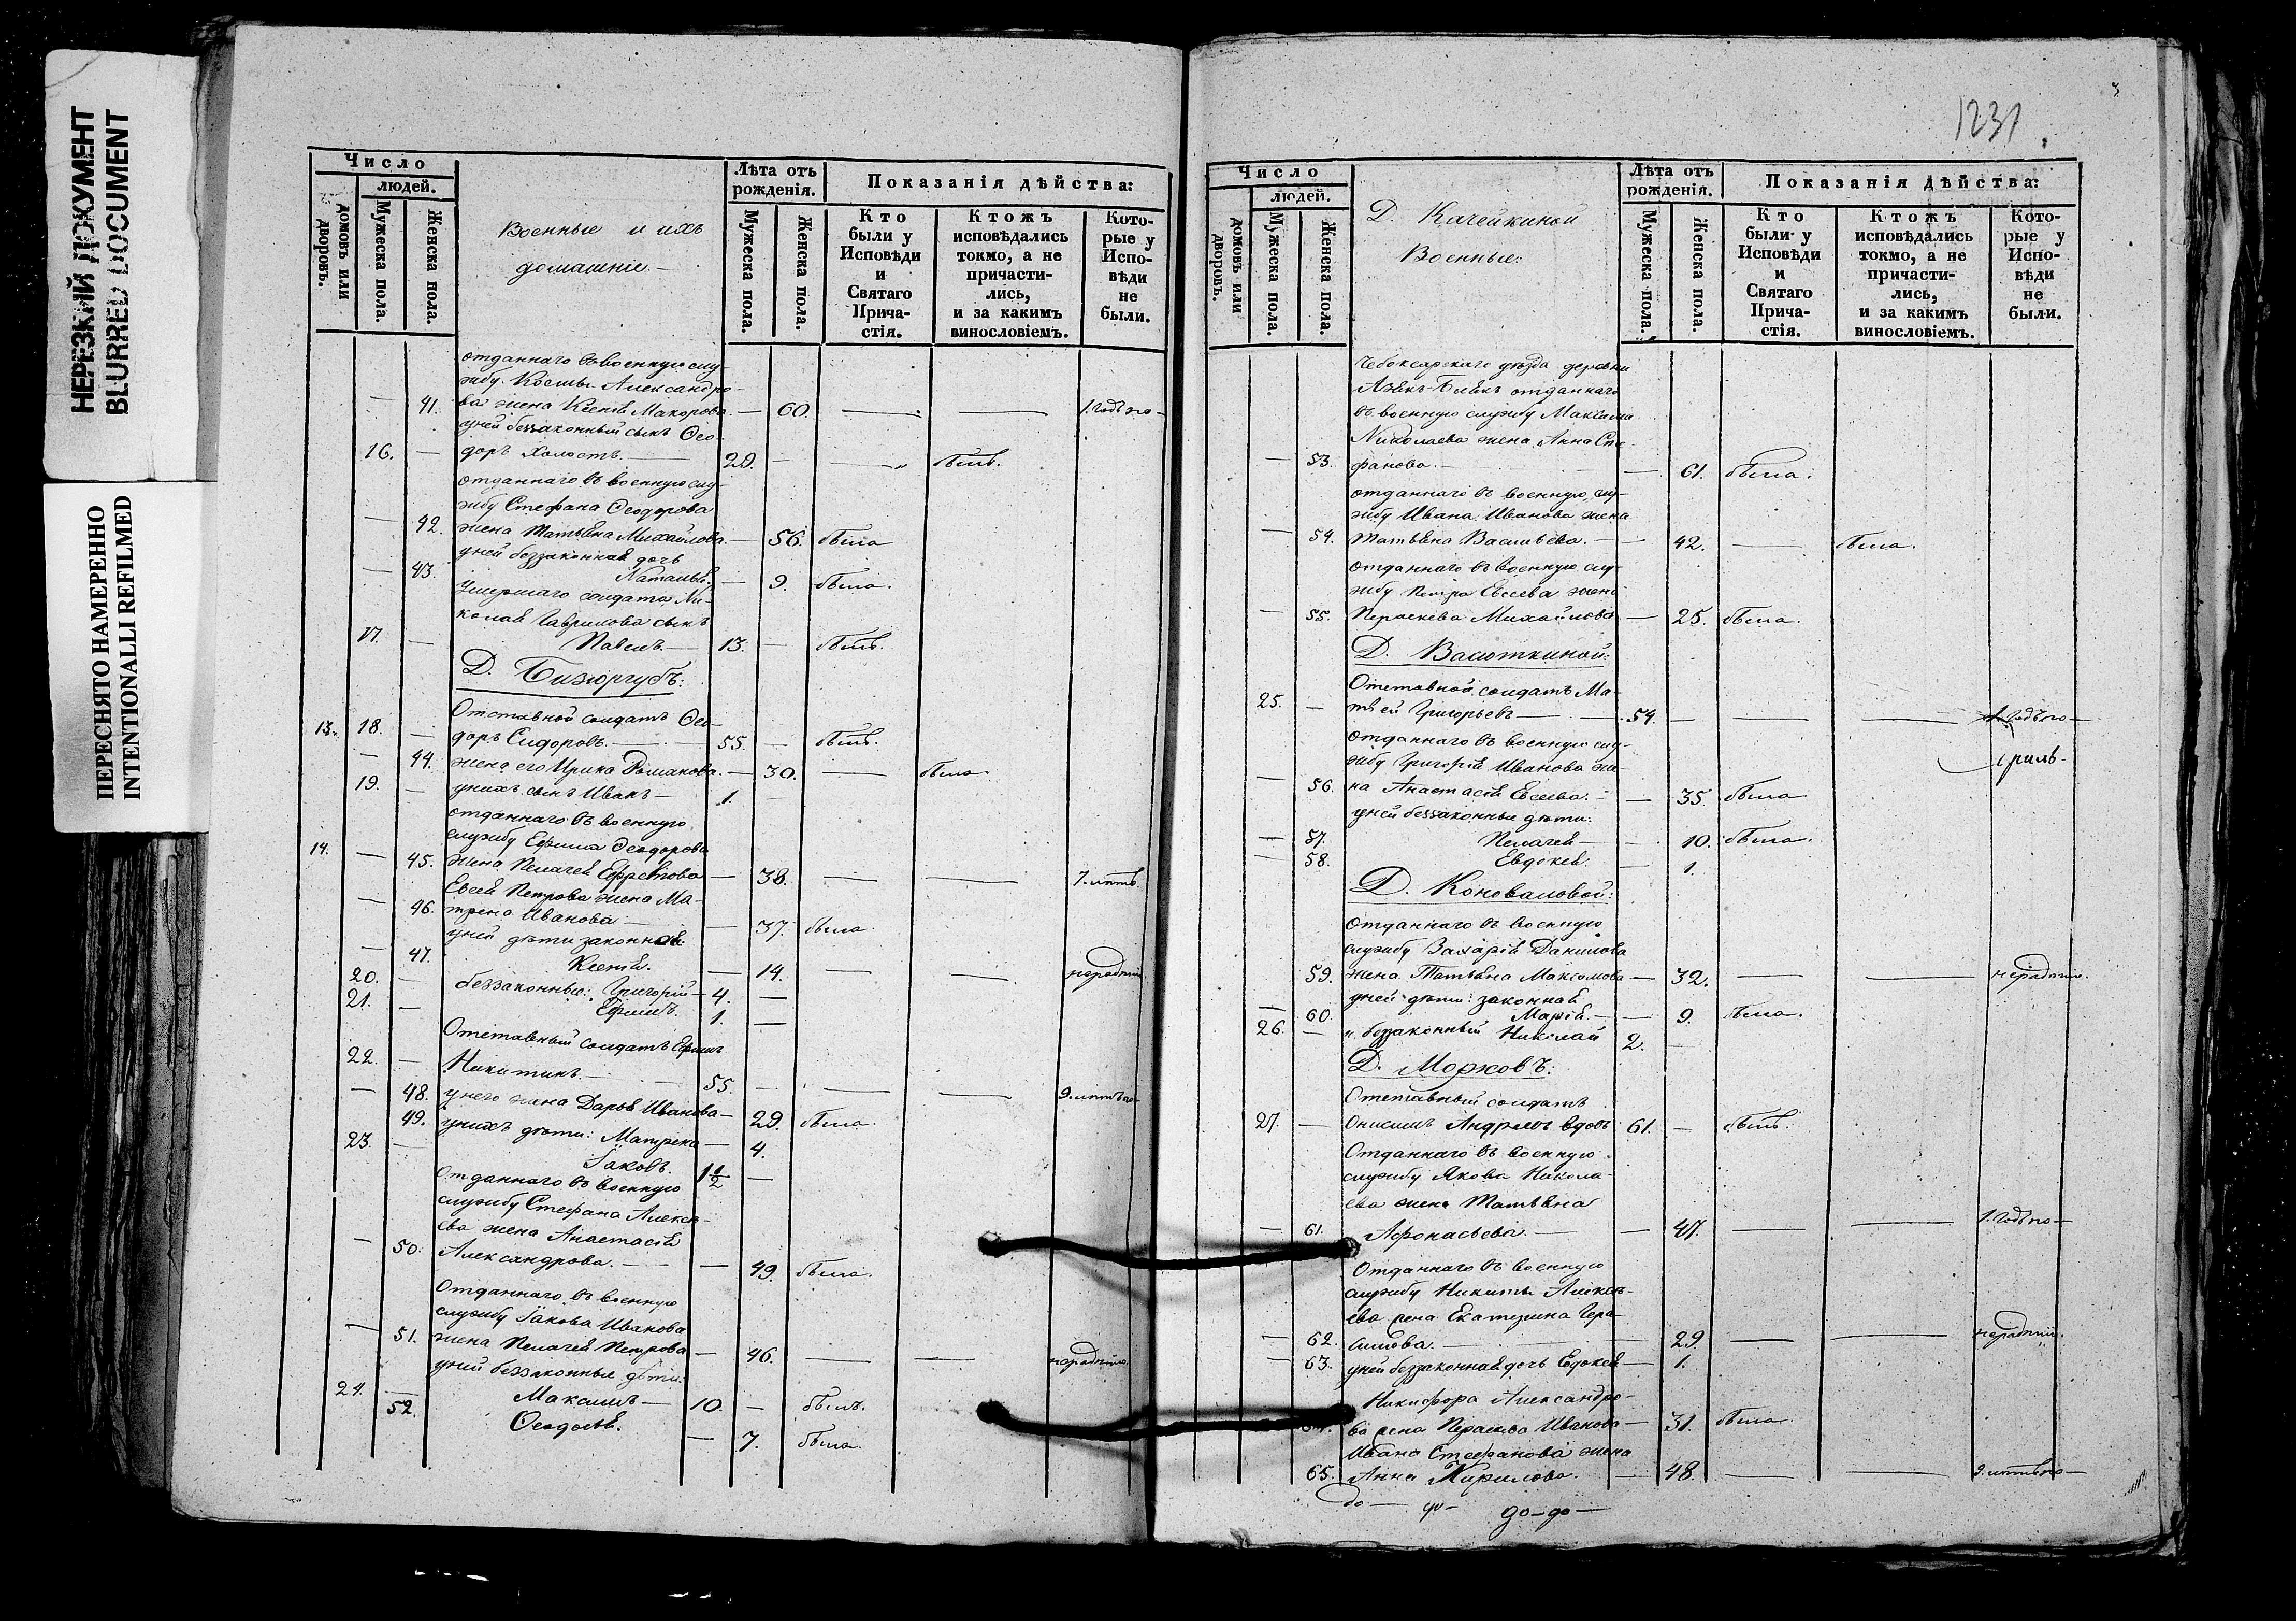 НЕРЕЗКИЙ ДОКУМЕНТ
BLURRED DOCUMENT
ПЕРЕСНЯТО НАМЕРЕННО
INTENTIONALLI REFILMED
Число
людей.
домовъ или дворовъ.
Мужеска пола.
Женска пола.
Военные и ихъ
домашніе.—
Лѣта отъ рожденія.
Мужеска пола.
Женска пола.
Показанія дѣйства:
Кто были у Исповѣди и Святаго Прича-стія.
Ктожъ исповѣдались токмо, а не причасти-лись, и за какимъ винословіемъ.
Кото-рые у Испо-вѣди не были.
отданнаго въ военную слу-
жбу Космы Александро-
— 41. ва жена Ксенія Макарова. — 60. — — 1. годъ по —
у ней беззаконный сынъ Ѳео-
16. — доръ холостъ. — 29. — — былъ.
отданнаго въ военную слу-
жбу Стефана Ѳеодорова
— 42. жена Татьяна Михайлова. — 56. была
у ней беззаконная дочь
— 43. Наталья. — 9. была.
Умершаго солдата Ни-
колая Гаврилова сынъ
17. — Павелъ. — 13. — былъ.
Д. Бизюргубъ:
Отставной солдатъ Ѳео-
13. 18. — доръ Сидоровъ. — 55. — былъ.
— 44. жена его Ирина Романова. — 30. — была.
19. — у нихъ сынъ Иванъ — 1. —
отданнаго въ военную
службу Ефима Ѳеодорова
14. — 45. жена Пелагея Ефремова — 38. — — 7. лѣтъ
Евсея Петрова жена Ма-
— 46. трена Иванова — 37. была.
у ней дѣти законная:
— 47. Ксенія. — 14. — —
20. — беззаконные: Григорій — 4. —
21. — Ефимъ. 1. —
Отставный солдатъ Ефимъ
22. — Никитинъ. — 55. — — — 9. лѣтъ по —
— 48. у него жена Дарья Иванова — 29. была.
49. у нихъ дѣти: Матрена — 4.
23. — Іаковъ. 1 1/2 —
Отданнаго въ военную
службу Стефана Алексѣ-
ева жена Анастасія
— 50. Александрова. — — 49. была.
Отданнаго въ военную
службу Іакова Иванова
— 51. жена Пелагея Петрова — 46. — —
у ней беззаконные дѣти:
24. — Максимъ — 10. — былъ.
52. Ѳеодосія. — 7. была.
1231
Число
людей.
домовъ или дворовъ.
Мужеска пола.
Женска пола.
Д. Качейкиной
Военные:
Лѣта отъ рожденія.
Мужеска пола.
Женска пола.
Показанія дѣйства:
Кто были у Исповѣди и Святаго Прича-стія.
Ктожъ исповѣдались токмо, а не причасти-лись, и за какимъ винословіемъ.
Кото-рые у Испо-вѣди не были.
Чебоксарскаго уѣзда деревни
отданнаго
въ военную службу Максима
Николаева жена Анна Сте-
— 53. фанова. — — 61. была.
отданнаго въ военную слу-
жбу Ивана Иванова жена
— 54. Татьяна Васильева. — — 42. — была.
отданнаго въ военную слу-
жбу Петра Евсеева жена
— 55. Параскева Михайлова — 25. была.
Д. Васюткиной:
Отставной солдатъ Ма-
25. — твей Григорьевъ — 54. — — — 1. годъ по —
отданнаго въ военную слу-
жбу Григорія Иванова же-
— 56. на Анастасія Евсеева. — — 35. была
у ней беззаконные дѣти:
— 57. Пелагея — — 10. была.
— 58. Евдокея. — 1.
Д. Коноваловой:
Отданнаго въ военную
службу Захарія Данилова
59. жена Татьяна Максимова — 32. — —
у ней дѣти: законная
— 60. Марія. — — 9. была.
26. — и беззаконный Николай 2. —
Д. Морковъ:
Отставный солдатъ
27. — Онисимъ Андреевъ вдовъ 61. — былъ.
Отданнаго въ военную
службу Якова Никола-
ева жена Татьяна
— 61. Афонасьева. — — 47. — — 1. годъ по —
Отданнаго въ военную
службу Никиты Алексѣ-
ева жена Екатерина Гера-
— 62. симова. — — 29. — —
— 63. у ней беззаконная дочь Евдокея — 1.
Никифора Александро-
64. ва жена Параскева Иванова — 31. была.
Ивана Стефанова жена
65. Анна Кирилова. — 48. — — 9. лѣтъ по —
до — до — до — до —